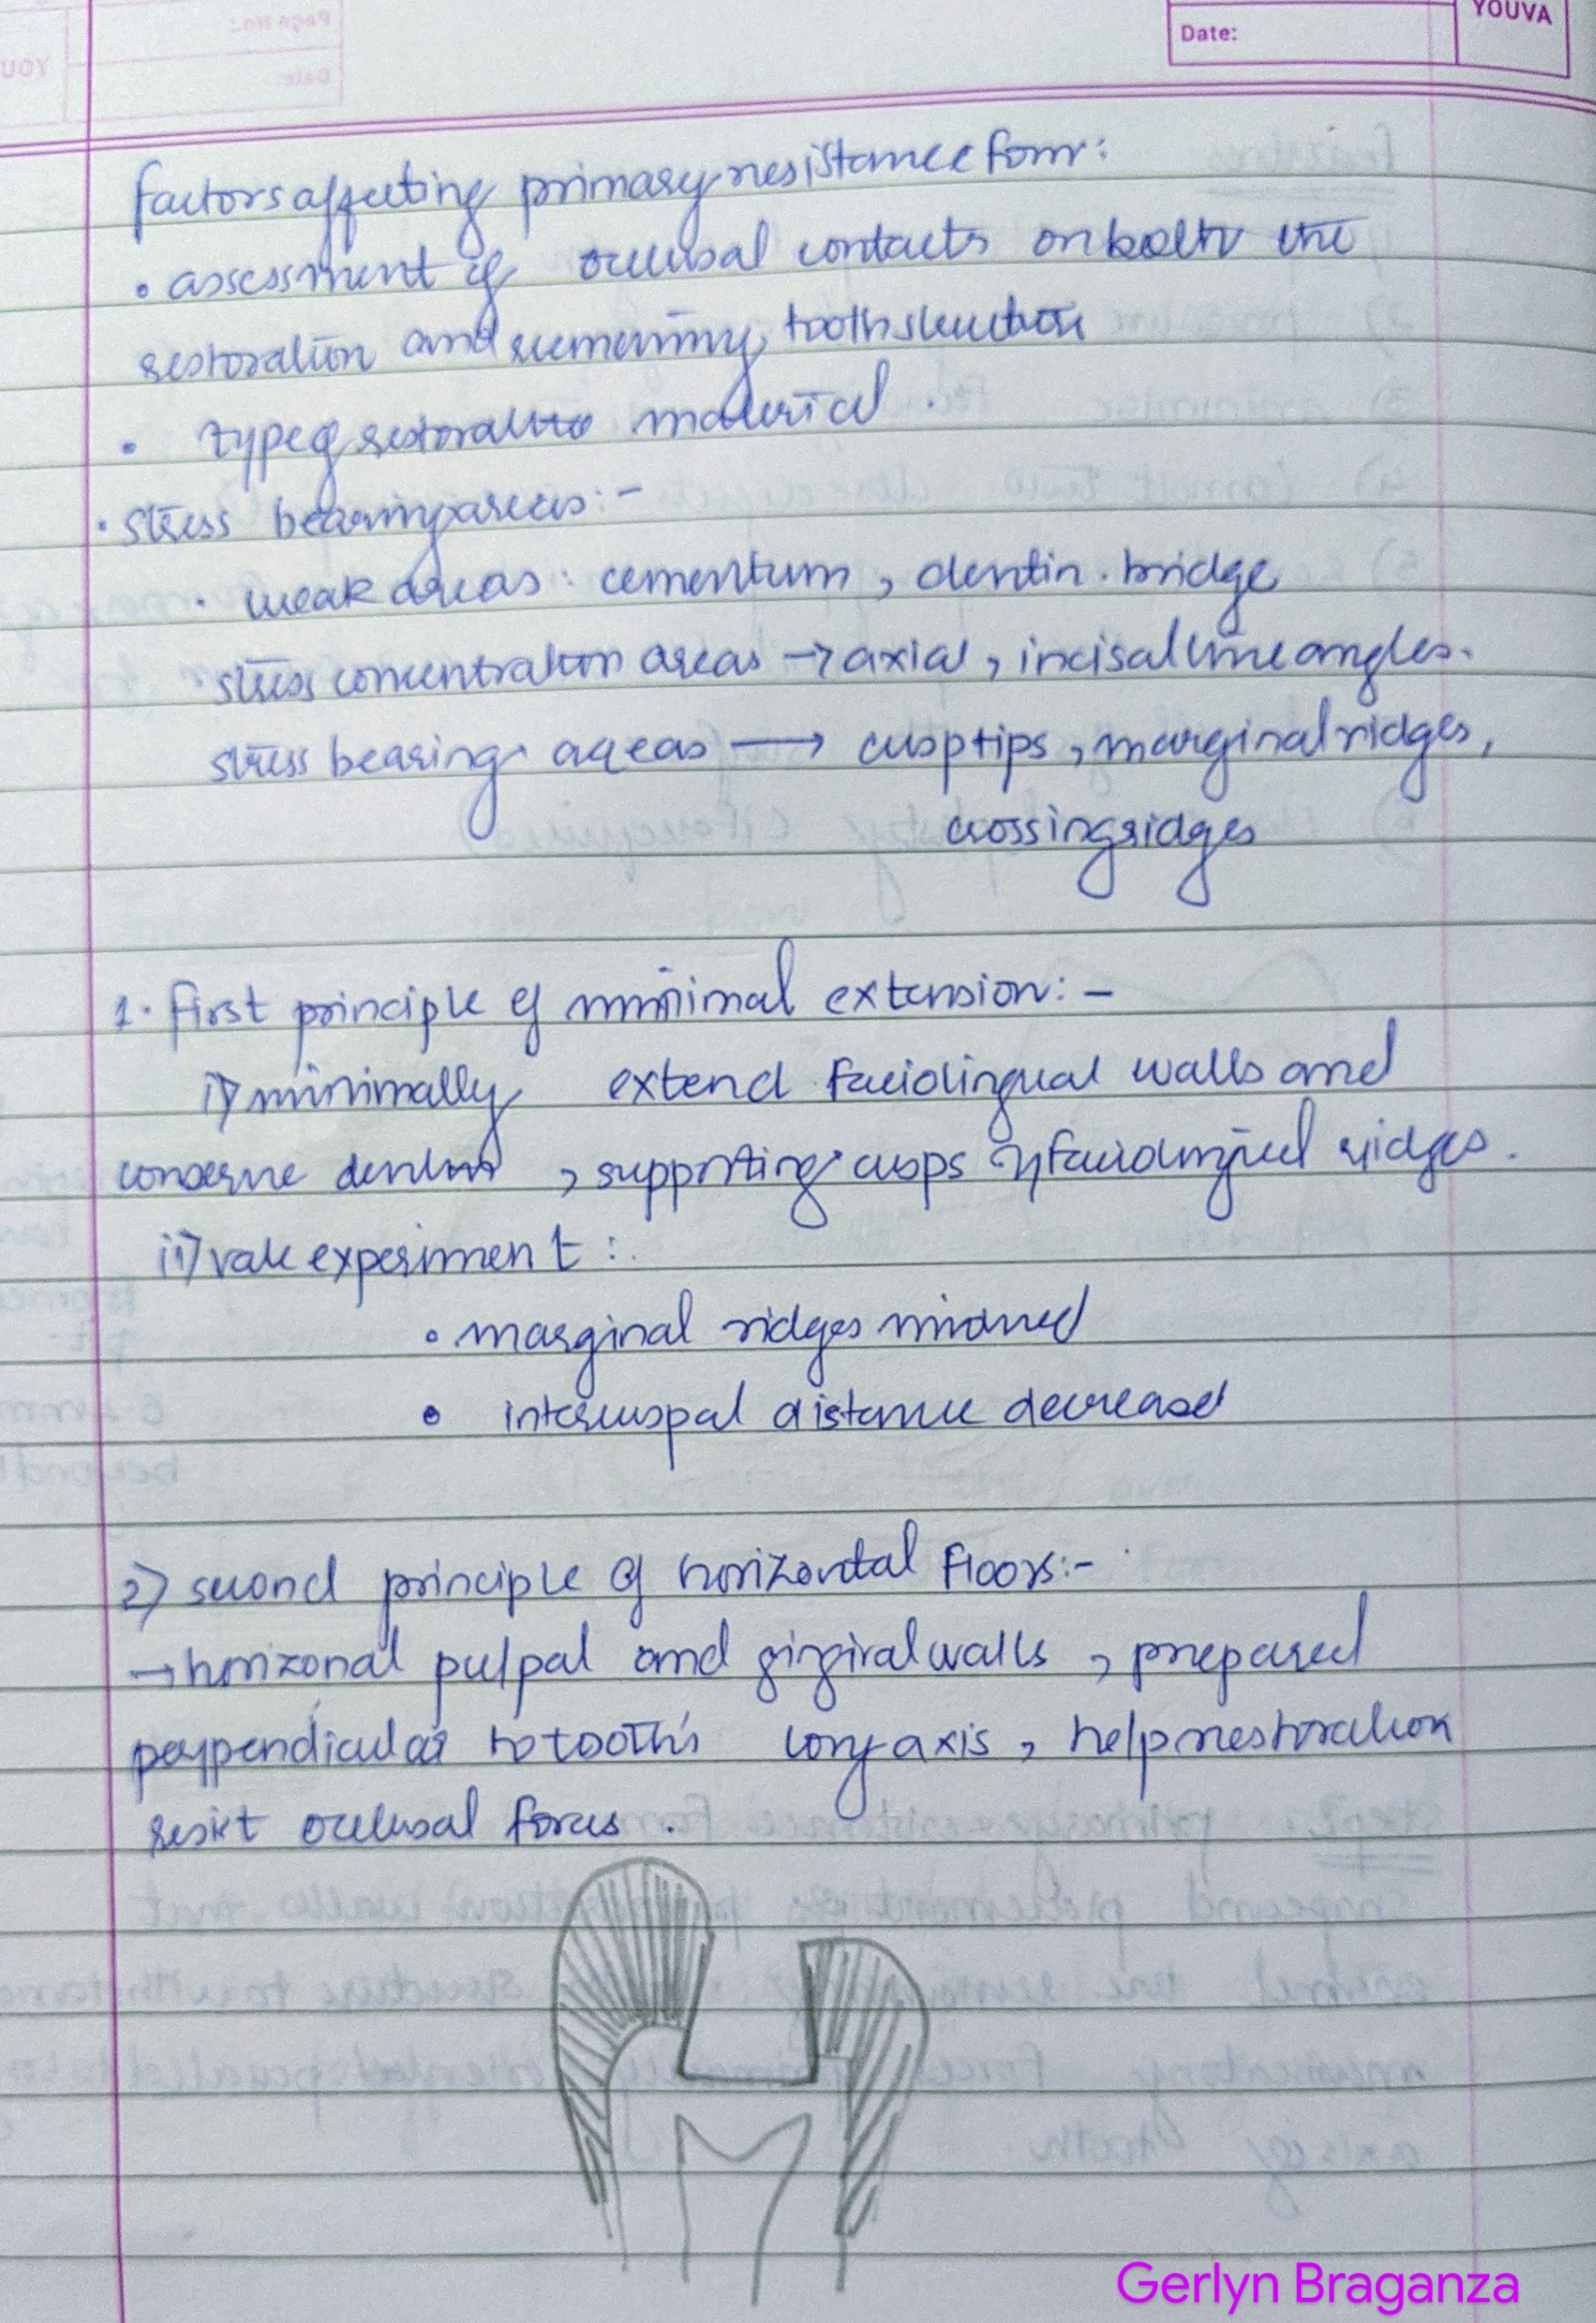 Date:
YOUVA
factors affecting primary resistance form:
• assessment of occlusal contacts on both the
restoration and remaining tooth structure
• type of restorative material.
• stress bearing areas:-
· weak areas: cementum, dentin bridge
stress concentration areas → axial, incisal line angles.
stress bearing areas → cusp tips, marginal ridges,
crossing ridges
1. first principle of minimal extension:-
i) minimally extend faciolingual walls and
conserve dentin, supporting cusps faciolingual ridges.
ii) vale experiment:
• marginal ridges
• intercuspal distance decreased
2) second principle of horizontal floors:-
→ horizonal pulpal and gingival walls, prepared
perpendicular to tooth's long axis, help restoration
resist occlusal forces.
Gerlyn Braganza